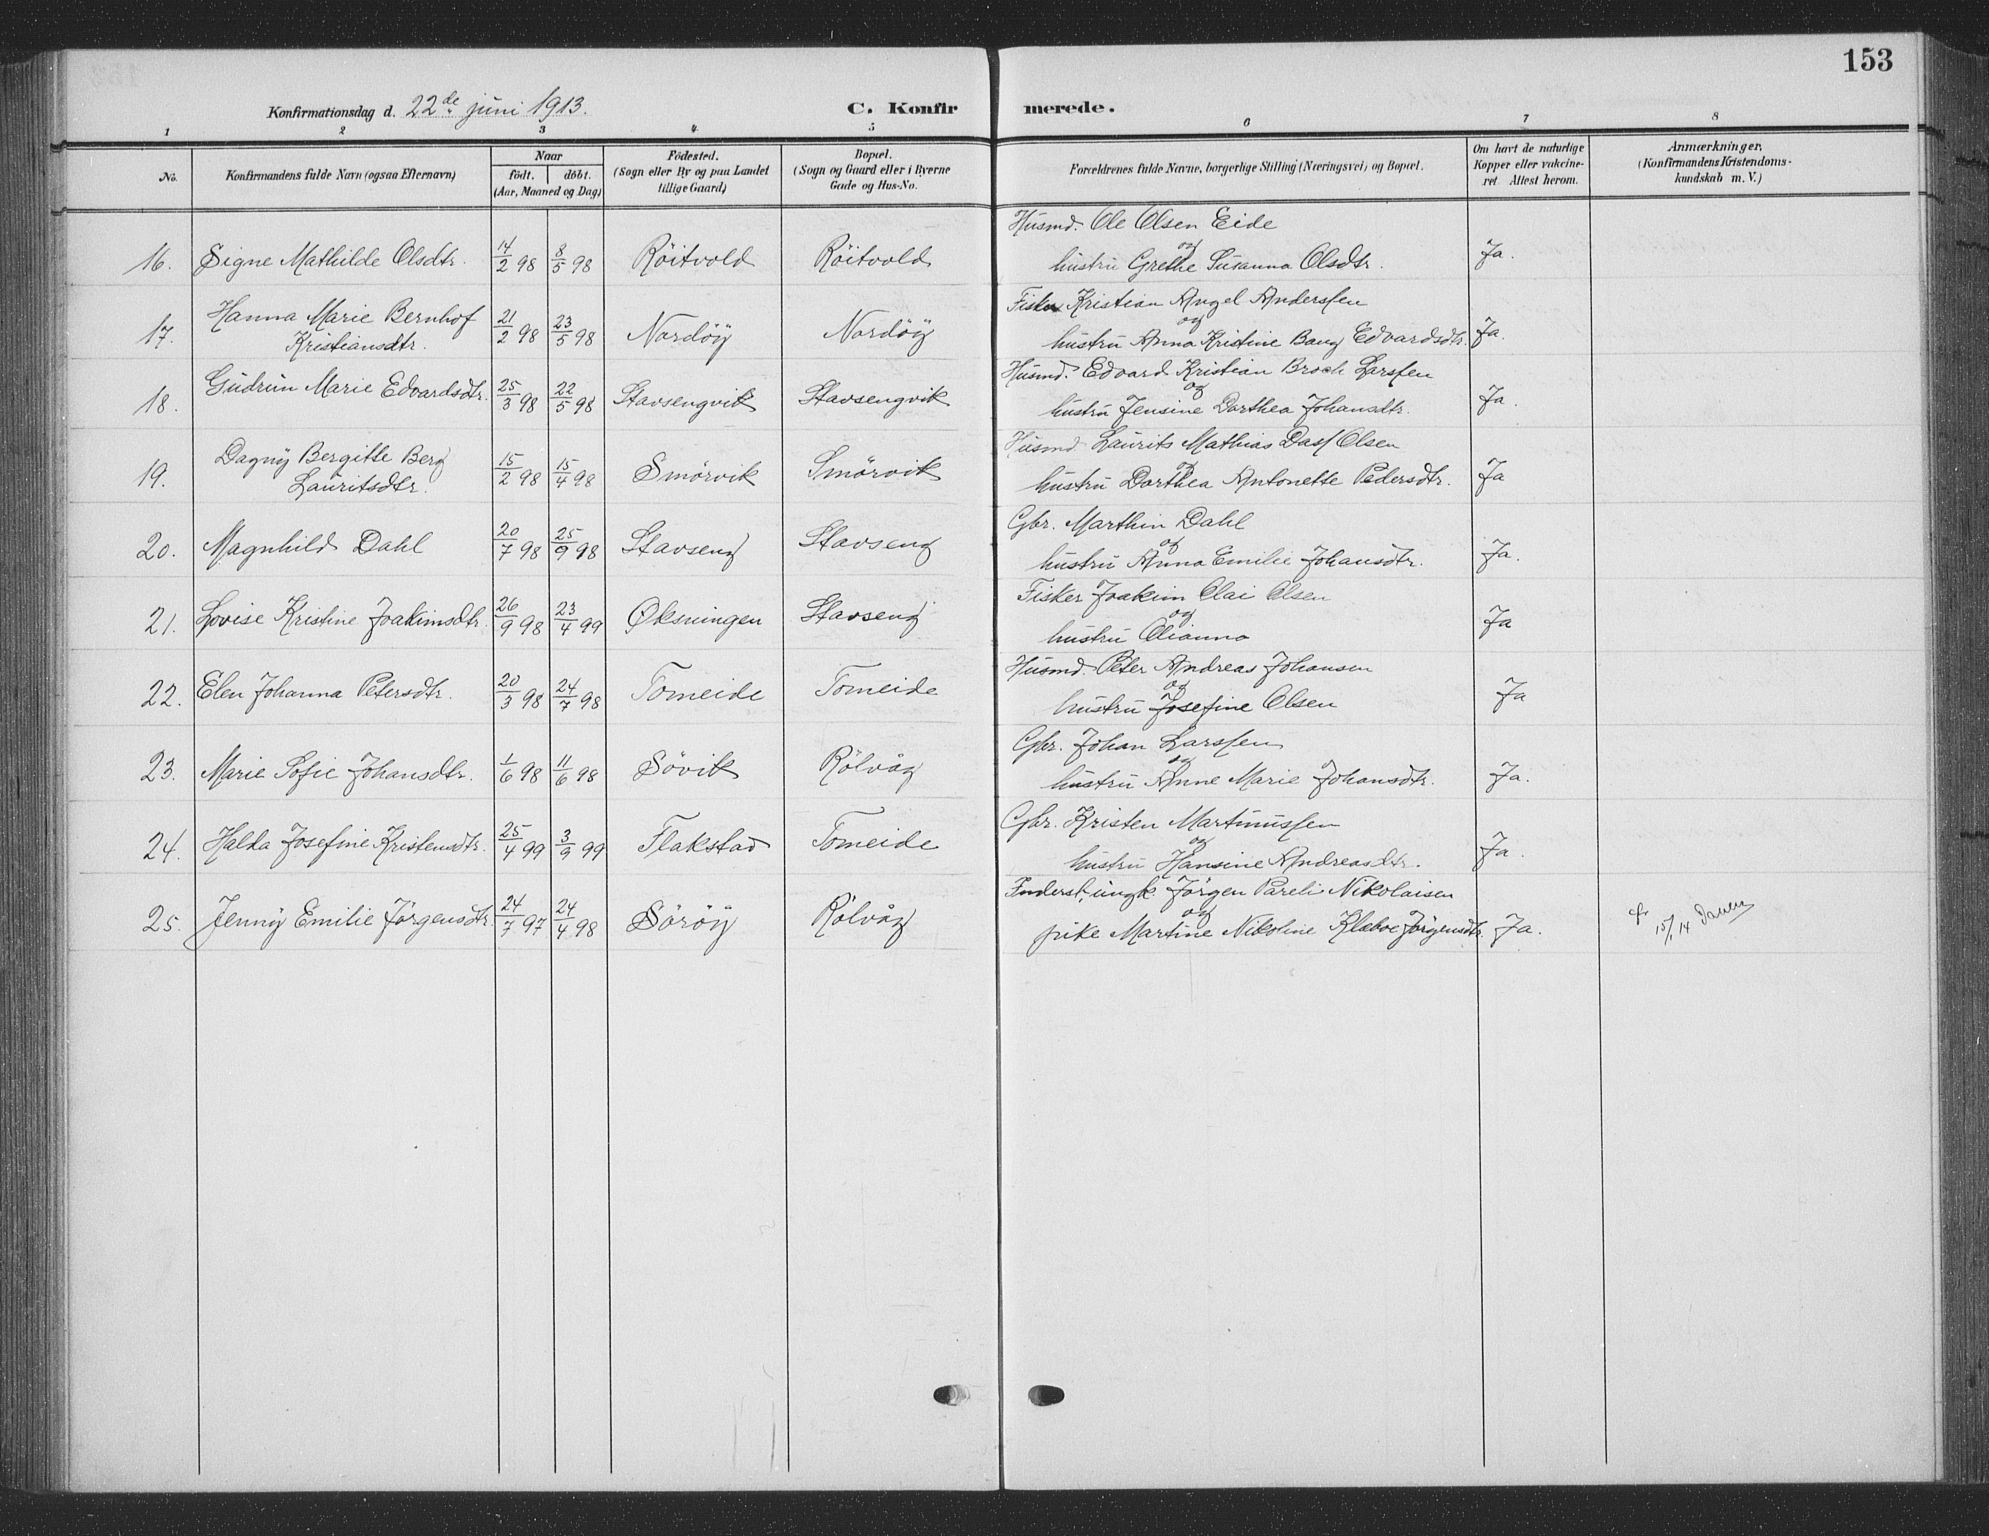 153
Konfirmationsdag d. 22de juni 1913. C. Konfirmerede.
1 2 3 4 5 6 7 8
No. Konfirmandens fulde Navn (ogsaa Efternavn) Naar født. døbt. (Aar, Maaned og Dag) Fødested. (Sogn eller By og paa Landet tillige Gaard) Bopæl. (Sogn og Gaard eller i Byerne Gade og Hus-No. Forældrenes fulde Navne, borgerlige Stilling (Næringsvei) og Bopæl. Om havt de naturlige Kopper eller vakcineret. Attest herom. Anmærkninger. (Konfirmandens Kristendomskundskab m. V.)
16. Signe Mathilde Olsdtr. 14/2 98 8/5 98 Röitvold Röitvold Husmd. Ole Olsen Eide
og
hustru Grethe Susanna Olsdtr. Ja.
17. Hanna Marie Bernhof
Kristiansdtr. 21/2 98 23/5 98 Nordöÿ Nordöÿ Fisker Kristian Angel Anderssen
og
hustru Anna Kristine Bang Edvardsdtr. Ja.
18. Gudrun Marie Edvardsdtr. 25/3 98 22/5 98 Stavsengvik Stavsengvik Husmd. Edvard Kristian Broch Larssen
og
hustru Jensine Dorthea Johansdtr. Ja.
19. Dagnÿ Bergitte Berg
Lauritsdtr. 15/2 98 15/4 98 Smörvik Smörvik Husmd Laurits Mathias Dass Olsen
og
hustru Dorthea Antonette Pedersdtr. Ja
20. Magnhild Dahl 20/7 98 25/9 98 Stavseng Stavseng Gbr. Marthin Dahl
og
hustru Anna Emilie Johansdtr. Ja.
21. Lovise Kristine Joakimsdtr. 26/9 98 23/4 99 Øksningen Stavseng Fisker Joakim Olai Olsen
og
hustru Olianna Ja
22. Elen Johanna Petersdtr. 20/3 98 24/7 98 Tomeide Tomeide Husmd. Peter Andreas Johansen
og
hustru Josefine Olsen Ja
23. Marie Sofie Johansdtr. 1/6 98 11/6 98 Sövik Rölvåg Gbr. Johan Larssen
og
hustru Anne Marie Johansdtr. Ja.
24. Halda Josefine Kristensdtr. 25/4 99 3/9 99 Flakstad Tomeide Gbr. Kristen Martinussen
og
hustru Hansine Andreasdtr. Ja.
25. Jennÿ Emilie Jörgensdtr. 24/7 97 24/4 98 Söröÿ Rölvåg Inderst, ungk. Jörgen Pareli Nikolaisen
og
pike Martine Nikoline Klæboe Jörgensdtr. Ja. 15/1 14